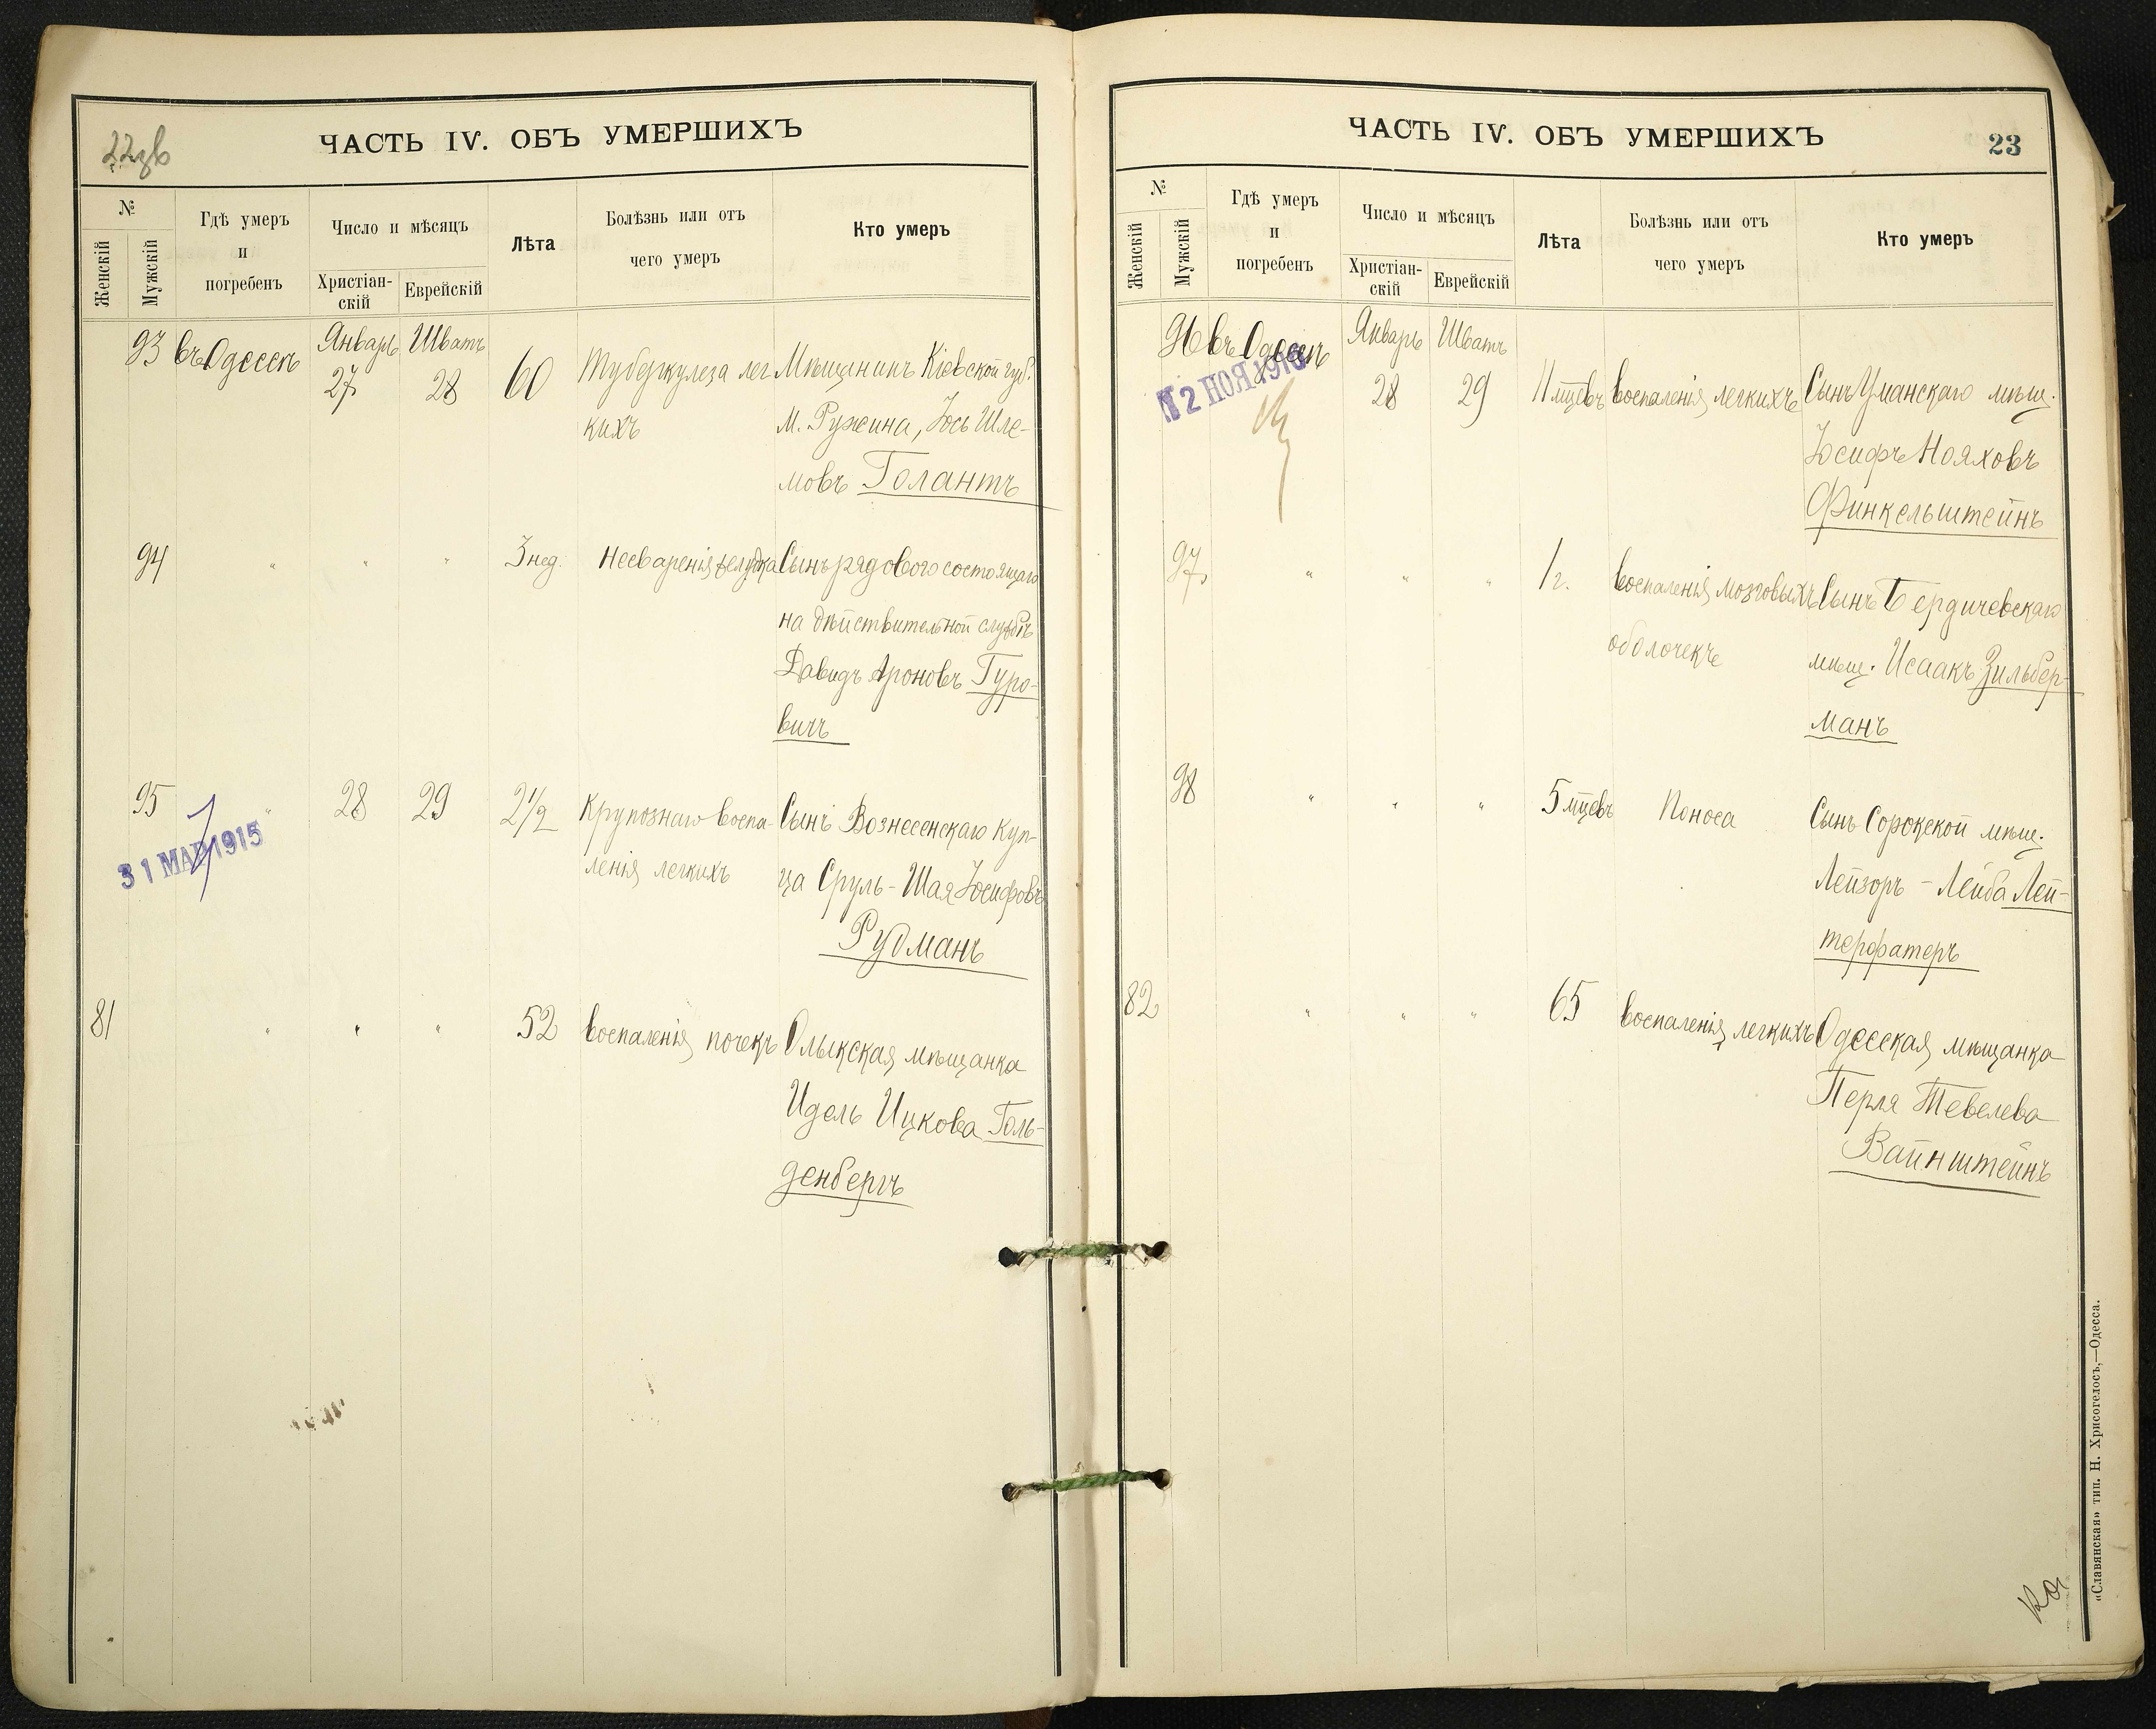 22зв
ЧАСТЬ IV. ОБЪ УМЕРШИХЪ
№
Женскій
Мужскій
Гдѣ умеръ
и
погребенъ
Число и мѣсяцъ
Христіан-
скій
Еврейскій
Лѣта
Болѣзнь или отъ
чего умеръ
Кто умеръ
93 въ Одессѣ Январь 27 Шватъ 28 60 Туберкулеза лег Мѣщанинъ Кіевской губ.
кихъ м. Ружина, Іось Шле-
мовъ Голантъ
94 " " " 3 нед. Несваренія желудка Сынъ рядового состоящаго
на дѣйствительной службѣ
Давидъ Ароновъ Гуро-
вичъ
95 " 28 29 2 1/2 Крупознаго воспа- Сынъ Вознесенскаго куп-
31 МАР 1915
ленія легкихъ ца Сруль-Шая Іосифовъ
Рудманъ
81 " " " 52 воспаленія почекъ Олыкская мѣщанка
Идель Ицкова Голь-
денбергъ
ЧАСТЬ IV. ОБЪ УМЕРШИХЪ
23
№
Женскій
Мужскій
Гдѣ умеръ
и
погребенъ
Число и мѣсяцъ
Христіан-
скій
Еврейскій
Лѣта
Болѣзнь или отъ
чего умеръ
Кто умеръ
96 въ Одессѣ Январь 28 Шватъ 29 11 мцевъ воспаленія легкихъ Сынъ Уманскаго мѣщ.
2 НОЯ 1916
Іосифъ Нояховъ
Финкельштейнъ
97 " " " 1 г. воспаленія мозговыхъ Сынъ Бердичевскаго
оболочекъ мѣщ. Исаакъ Зильбер-
манъ
98 " " " 5 мцевъ Поноса Сынъ Сорокской мѣщ.
Лейзоръ-Лейба Лей-
терфатеръ
82 " " " 65 воспаленія легкихъ Одесская мѣщанка
Перля Тевелева
Вайнштейнъ
«Славянская» тип. Н. Хрисогелосъ,—Одесса.